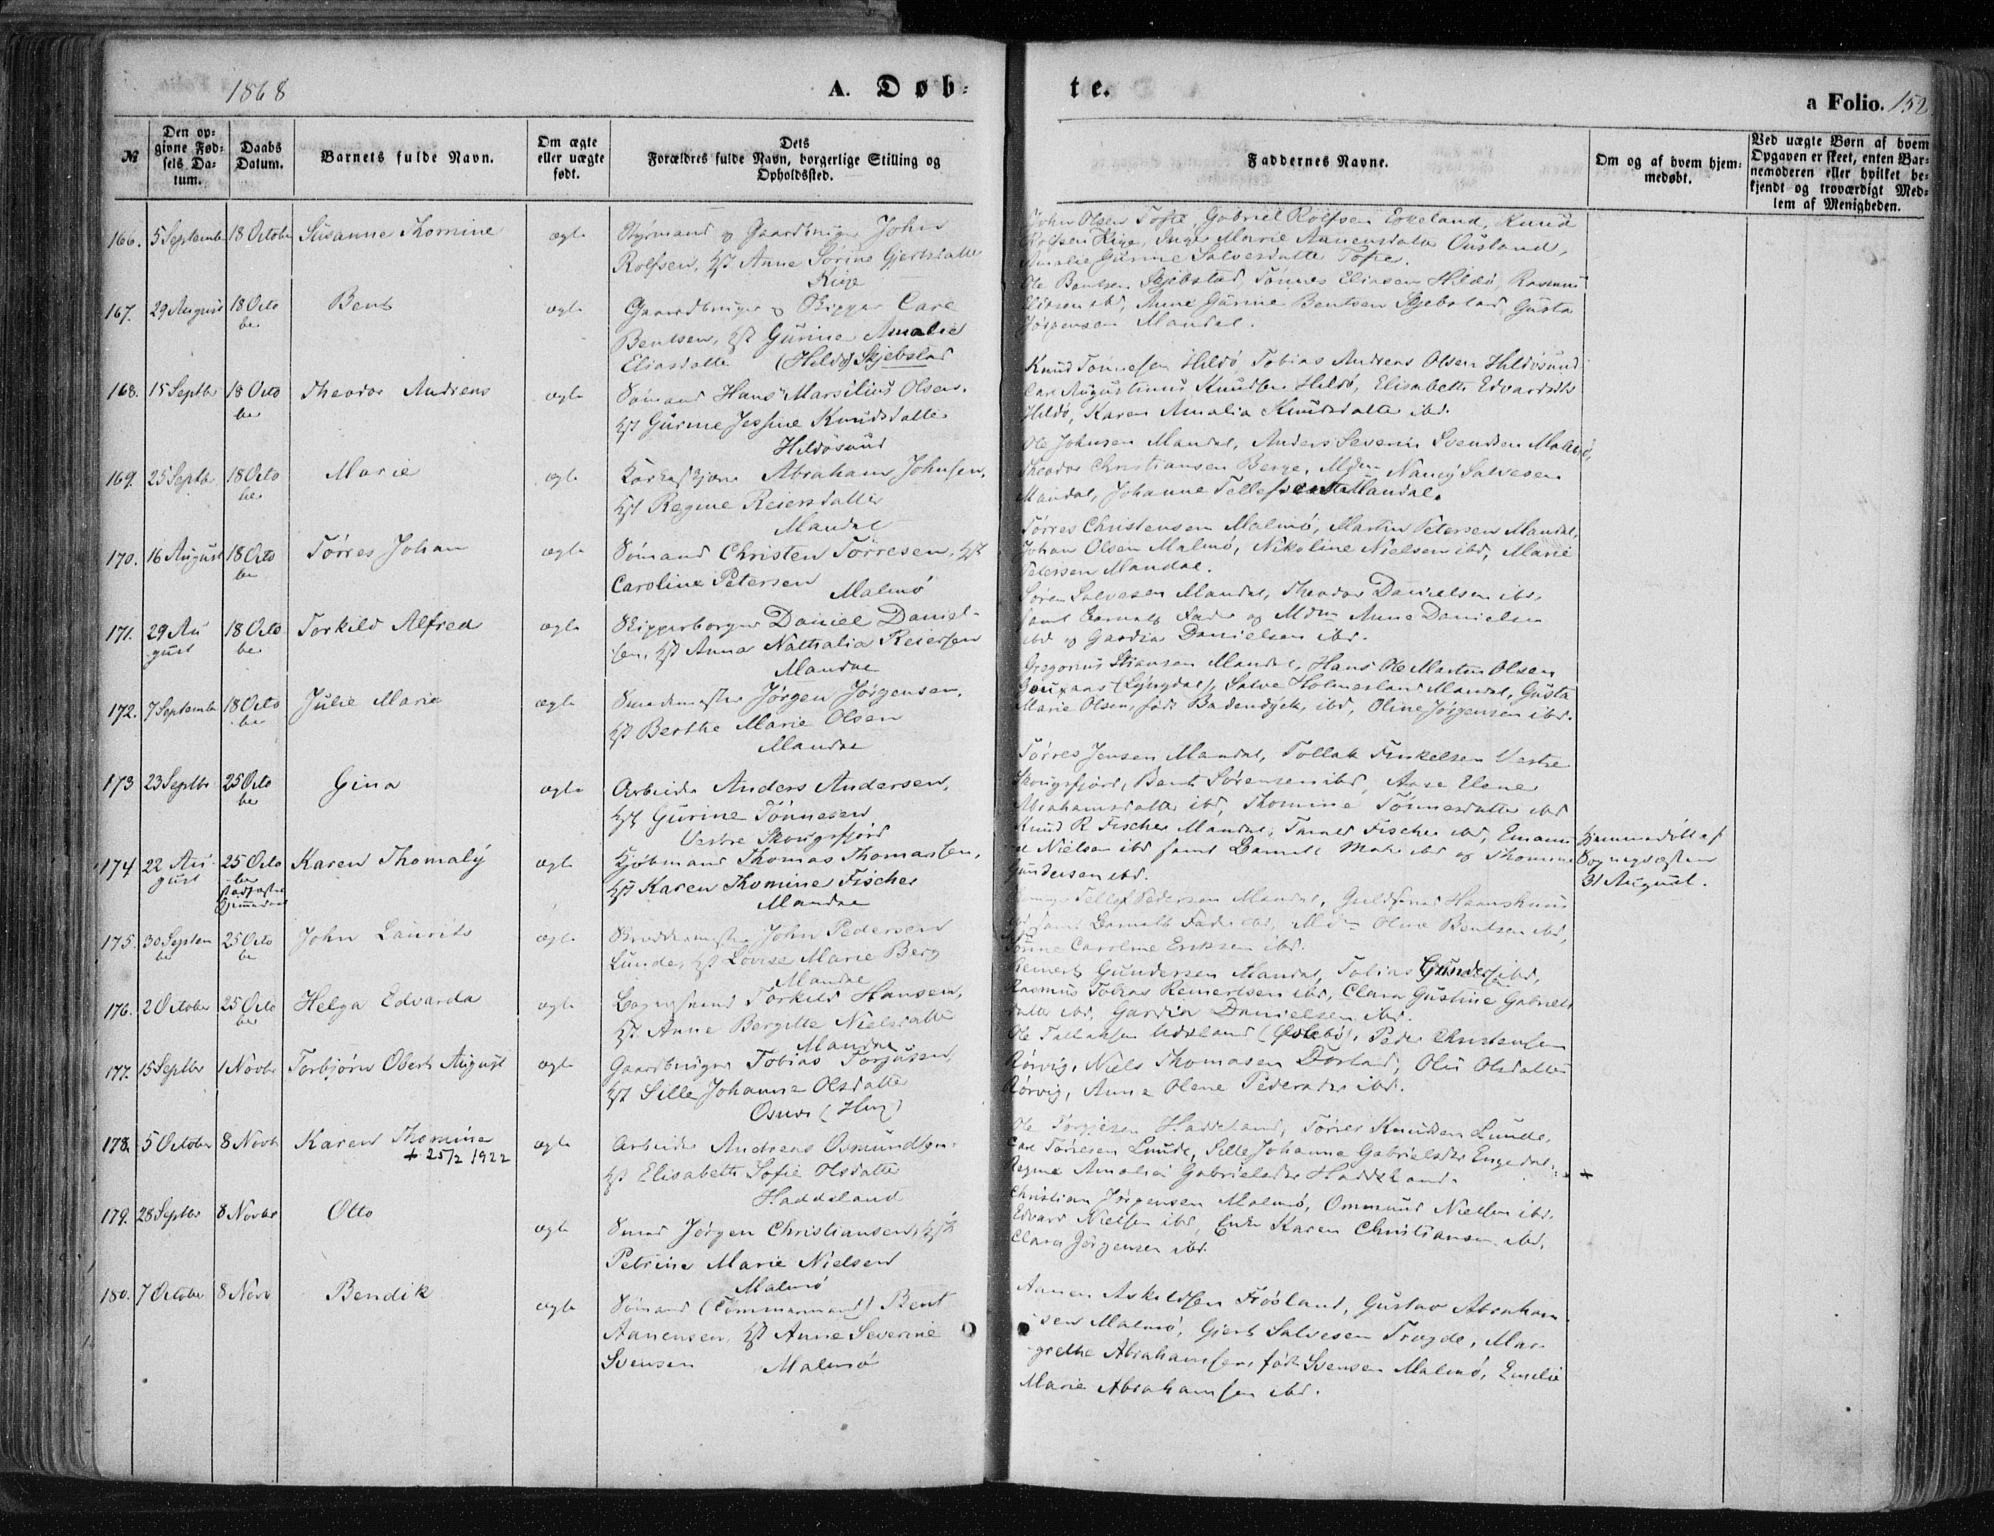 1868
A. Døb=
te.
a Folio. 152
№
Den op=
givne Fød=
sels Da=
tum.
Daabs
Datum.
Barnets fulde Navn.
Om ægte
eller uægte
født.
Dets
Forældres fulde Navn, borgerlige Stilling og
Opholdssted.
Faddernes Navne.
Om og af hvem hjem=
medøbt.
Ved uægte Børn af hvem
Opgaven er skeet, enten Bar=
nemoderen eller hvilket be=
kjendt og troværdigt Med=
lem af Menigheden.
166. 5 Septembe 18 Octobe Susanne Thomine ægte Styrmand og Gaardbruger John
Rolfsen, Hst Anne Sørine Gjertsdatter
John Olsen Tofte, Gabriel Rolfsen Eskeland, Knud
Amalie Gurine Salvesdatte Tofte.
167. 29 August 18 Octo
be Bent ægte Gaardbruger og Skipper Carl
Bentsen, Hst Gurine Amalie
Eliasdatte (Hildø) Skjebstad
Ole Bentsen Skjebstad, Tønnes Eliasen Hildø, Rasmus
Eliasen ibd, Anne Gurine Bentsen Skjebstad, Gusta
Jørgensen Mandal.
168. 15 Septbr 18 Octo
be Theodor Andreas ægte Sømand Hans Marsilius Olsen.
Hst Gurine Jessine Knudsdatter
Hildøsund
Knud Tønnesen Hildø, Tobias Andreas Olsen Hildøsund
Carl Augustinus Knudsen Hildø, Elisabeth Edvardsdtr
Hildø, Karen Amalia Knudsdatter ibd.
169. 25 Septbr 18 Octo
be Marie ægte Abraham Johnsen,
Hst Regine Reiersdatter
Mandal
Ole Johnsen Mandal, Anders Severin Svendsen Malmø,
Theodor Christiansen Berge, Mdm Nancy Salvesen
Mandal, Johanne Tellefsen Mandal.
170. 16 August 18 Octo
be Tørres Johan ægte Sømand Christen Tørresen, Hst
Caroline Petersen
Malmø
Tørres Christensen Malmø, Martin Petersen Mandal,
Johan Olsen Malmø, Nikoline Nielsen ibd, Marie
Petersen Mandal.
171. 29 Au
gust 18 Octo
be Torkild Alfred ægte Skipperborger Daniel Daniel-
sen, Hst Anna Nathalia Reiersen
Mandal
Søren Salvesen Mandal, Theodor Danielsen ibd,
samt Barnets Fader og Mdm Anne Danielsen
ibd og Gardia Danielsen ibd.
172. 7 Septembe 18 Octo
be Julie Marie ægte Smedemester Jørgen Jørgensen,
Hst Berthe Marie Olsen
Mandal
Gregorius Mandal, Hans Ole Martin Olsen
(Lyngdal), Salve Holmesland Mandal, Gusta
Marie Olsen, født ibd, Oline Jørgensen ibd.
173 23 Septbr 25 Octo
be Gina ægte Arbeider Anders Andersen,
Hst Gurine Tønnesen
Vestre Skougsfjord
Tørres Jensen Mandal, Tollak Vestre
Skougsfjord, Bent Sørensen ibd, Aase Elene
Abrahamsdatter ibd, Thomine Tønnesdatter ibd
174 22 Au-
gust 25 Octo
be
stadfæstet
Karen Thomaly ægte Kjøbmand Thomas Thomassen,
Hst Karen Thomine Fischer
Mandal
Knud R Fischer Mandal, Fischer ibd, Emanu
el Nielsen ibd samt Barnets ibd og Thomine
Gundersen ibd.
Hjemmedøbt af
Sognepræsten
31 August.
175. 30 Septem
be 25 Octo
be John Laurits ægte John Pedersen
Lunde, Hst Lovise Marie Berg
Mandal
Tellef Pedersen Mandal,
samt Barnets Fader ibd, Mdm Oline Bentsen ibd,
Caroline Eriksen ibd.
176. 2 October 25 Octo
be Helga Edvarda ægte Torkild Hansen,
Hst Anne Bergitte Nielsdatter
Mandal
Reinert Gundersen Mandal, Tobias Gundersen ibd,
Rasmus Tobias Reinertsen ibd, Clara Gustine Gabriels
datter ibd. Gardia Danielsen ibd.
177. 15 Septbr 1 Novbr Torbjørn Obert August ægte Gaardbruger Tobias Torjusen,
Hst Sille Johanne Olsdatter
Ole Tallaksen Udsland (Øslebø), Peder Christensen
Rørvig, Niels Thomasen, Oli Olsdatter
Rørvig, Anne Olene Pedersdtr ibd.
178. 5 October 8 Novb Karen Thomine
+ 25/2 1922 ægte Arbeider Andreas Osmundsen.
Hst Elisabeth Sofie Olsdatter
Haddeland
Ole Torgjesen Haddeland, Tørres Knudsen Lunde,
Carl Tørresen Lunde, Sille Johanne Gabrielsdtr
Regine Amalia Gabrielsdtr Haddeland.
179. 28 Septbr 8 Novbr Otto ægte Smed Jørgen Christiansen, Hst
Petrine Marie Nielsen
Malmø
Christian Jørgensen Malmø, Ommund Nielsen ibd,
Edvard Nielsen ibd, Enke Karen Christiansen ibd,
Clara Jørgensen ibd.
180. 7 October 8 Novb Bendik ægte Sømand (Tømmermand) Bent
Aanensen, Hst Anne Severine
Svensen Malmø
Aanen Askildsen Frøsland, Gustav Abraham
sen Malmø, Gjert Salvesen Trygde, Mar-
grethe Abrahamsen, født Svensen Malmø, Emilie
Marie Abrahamsen ibd.